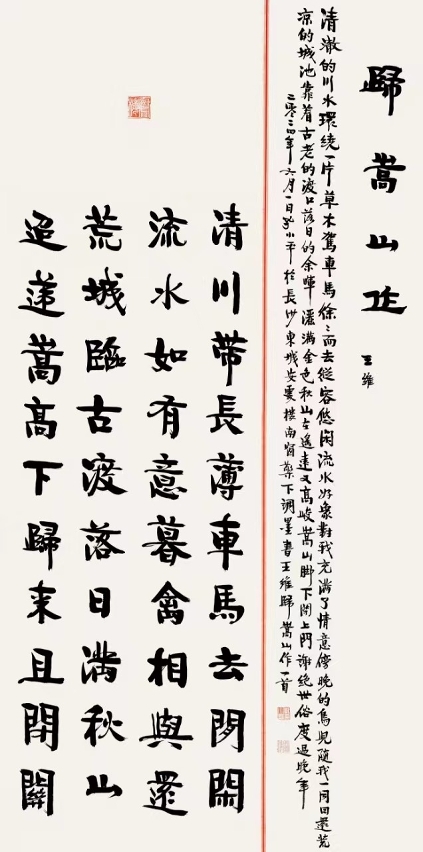 歸嵩山作
王維
清澈的川水環繞一片草木駕車馬徐〻而去從容悠閑流水好象對我充滿了情意傍晚的鳥兒隨我一同回還荒
凉的城池靠着古老的渡口落日的余暉灑滿金色秋山在遙遠又高峻嵩山脚下閉上門谢绝世俗度過晚年
二零二四年六月一日小平於長沙東城雲樓南窗下調墨書王維歸嵩山作一首
清川帶長薄車馬去閒閑
流水如有意暮禽相與還
荒城臨古渡落日滿秋山
迢遞嵩高下歸来且閉關